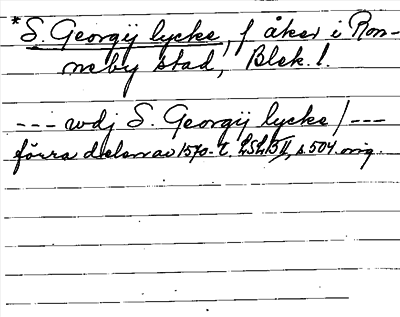 *S. Georgij lycke, f åker i Ron-
neby stad, Blek. l.
--- udj S. Georgij lycke /---
förra delen av 1570-t. LSLB II, s. 504. orig.